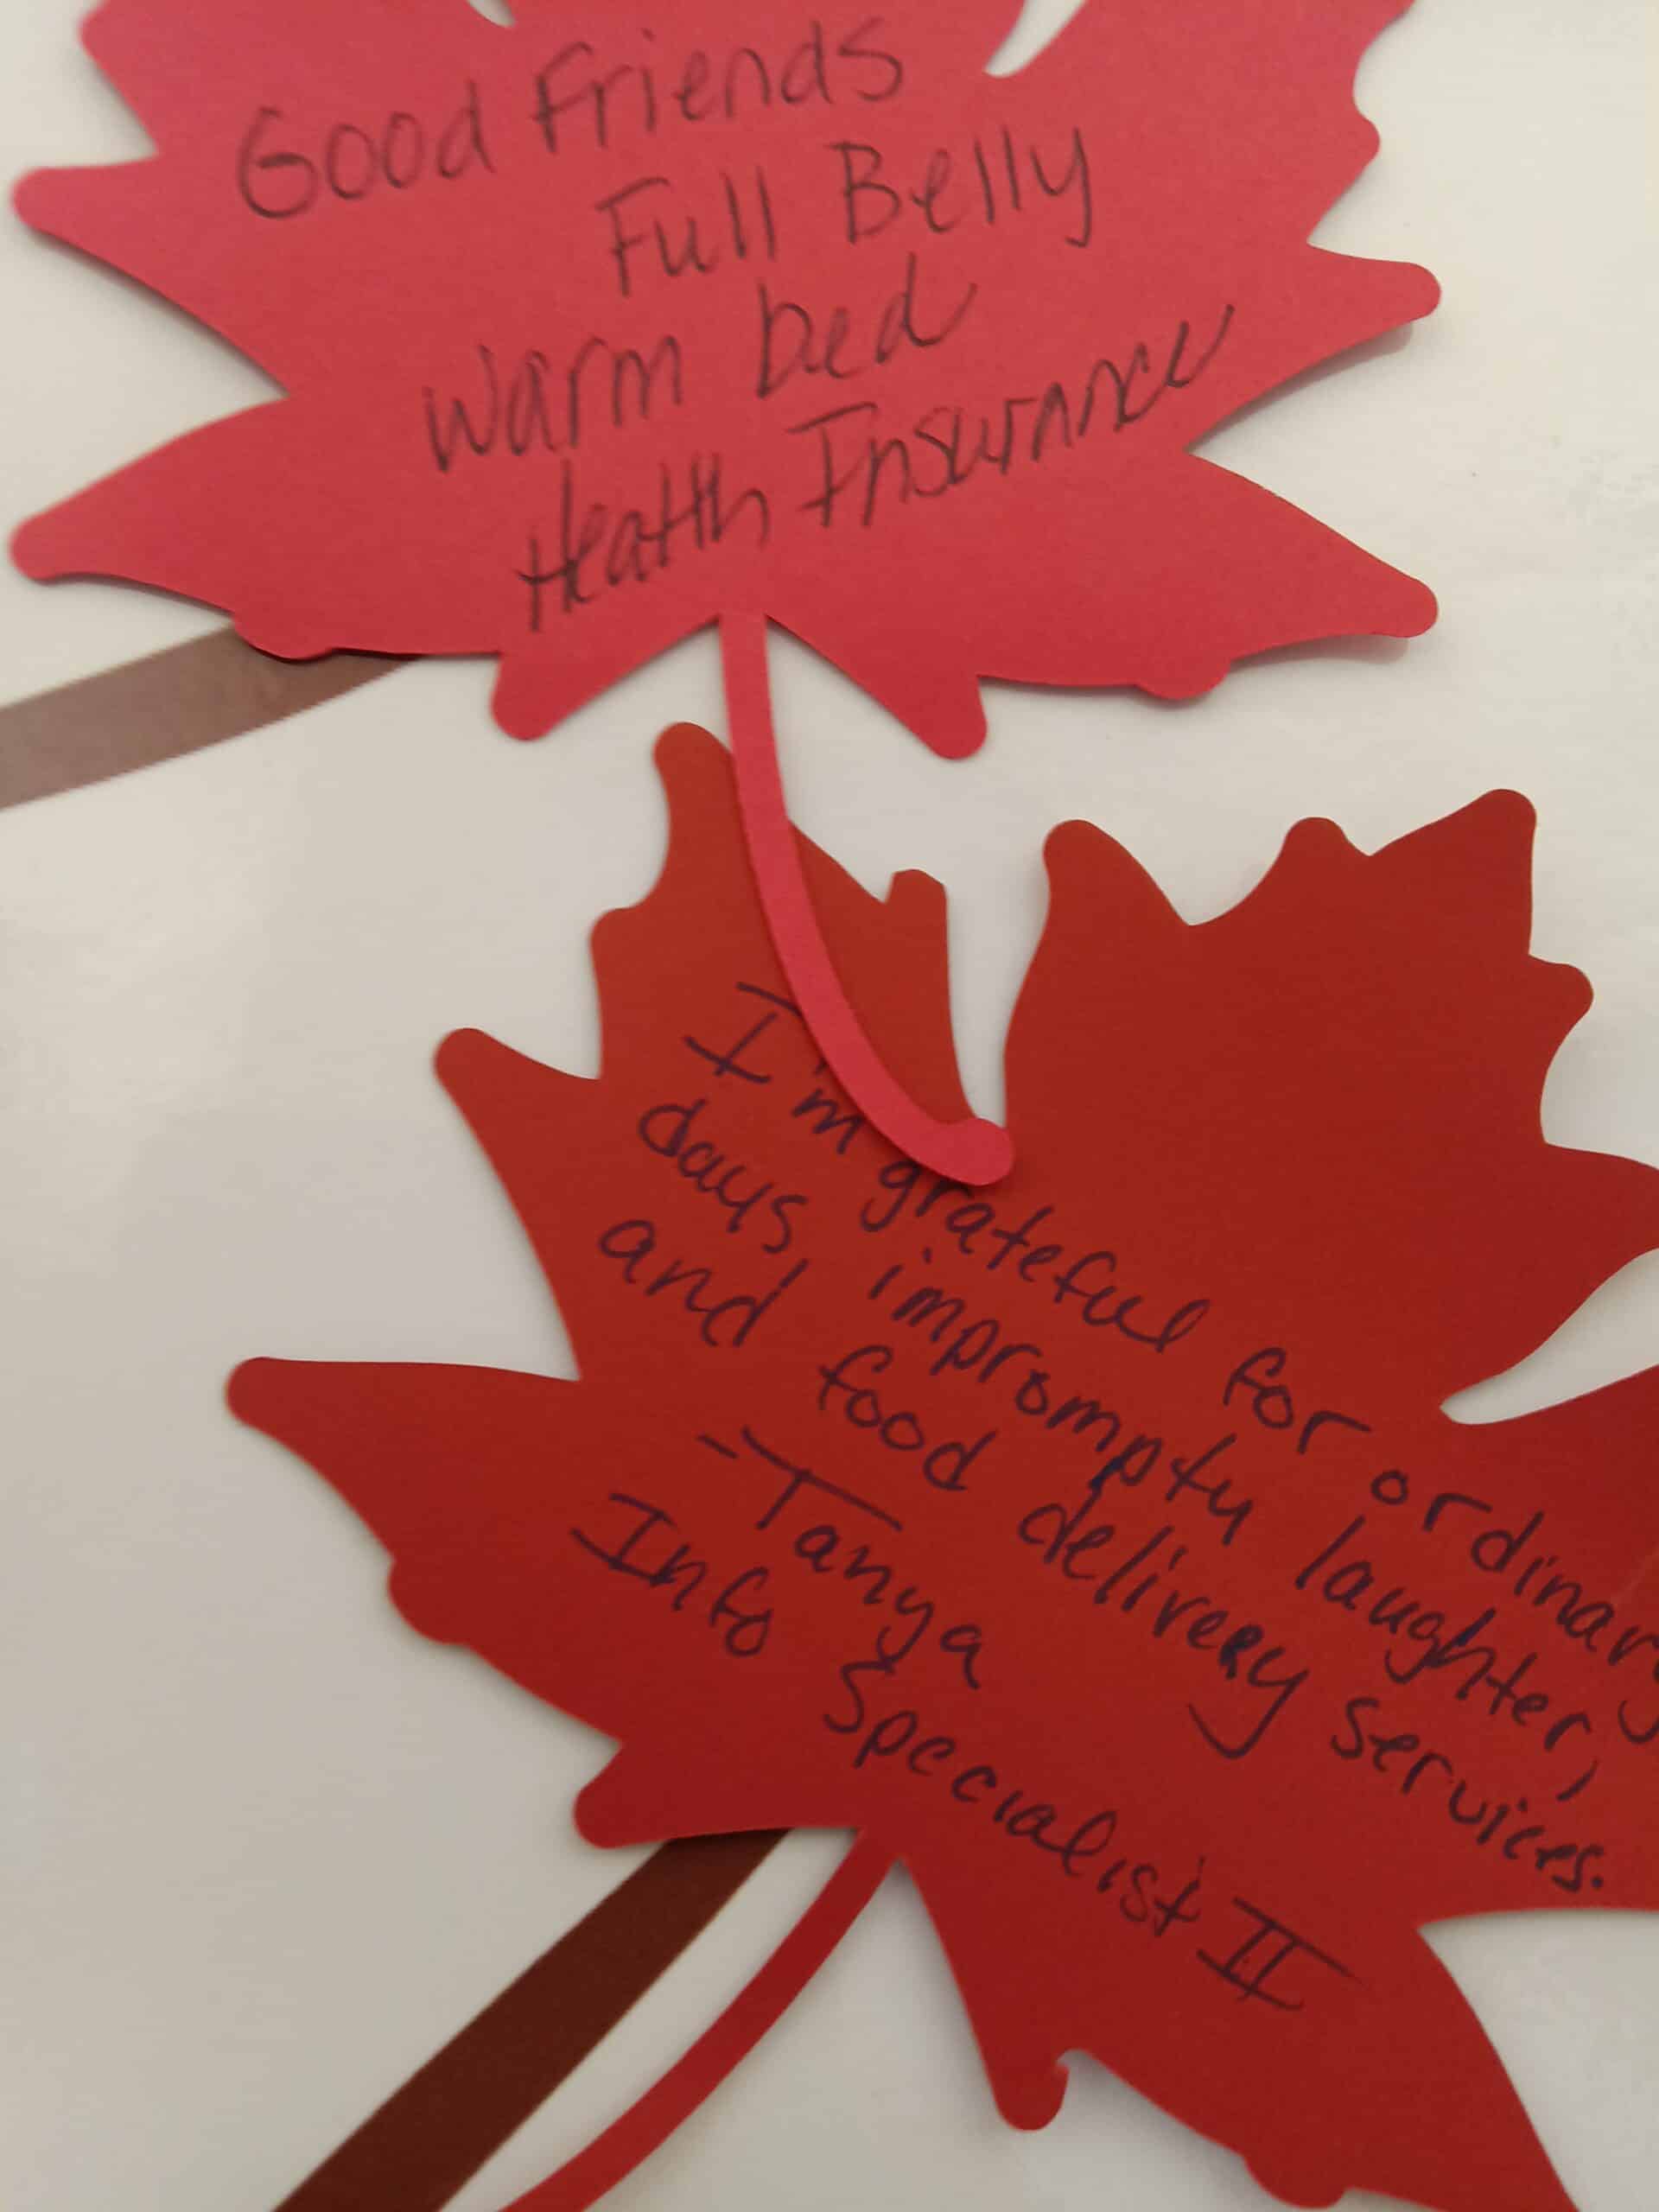 Good Friends
Full Belly
Warm bed
Health Insurance
I'm grateful for ordinary
days, impromptu laughter,
and food delivery services.
-Tanya
Info Specialist II